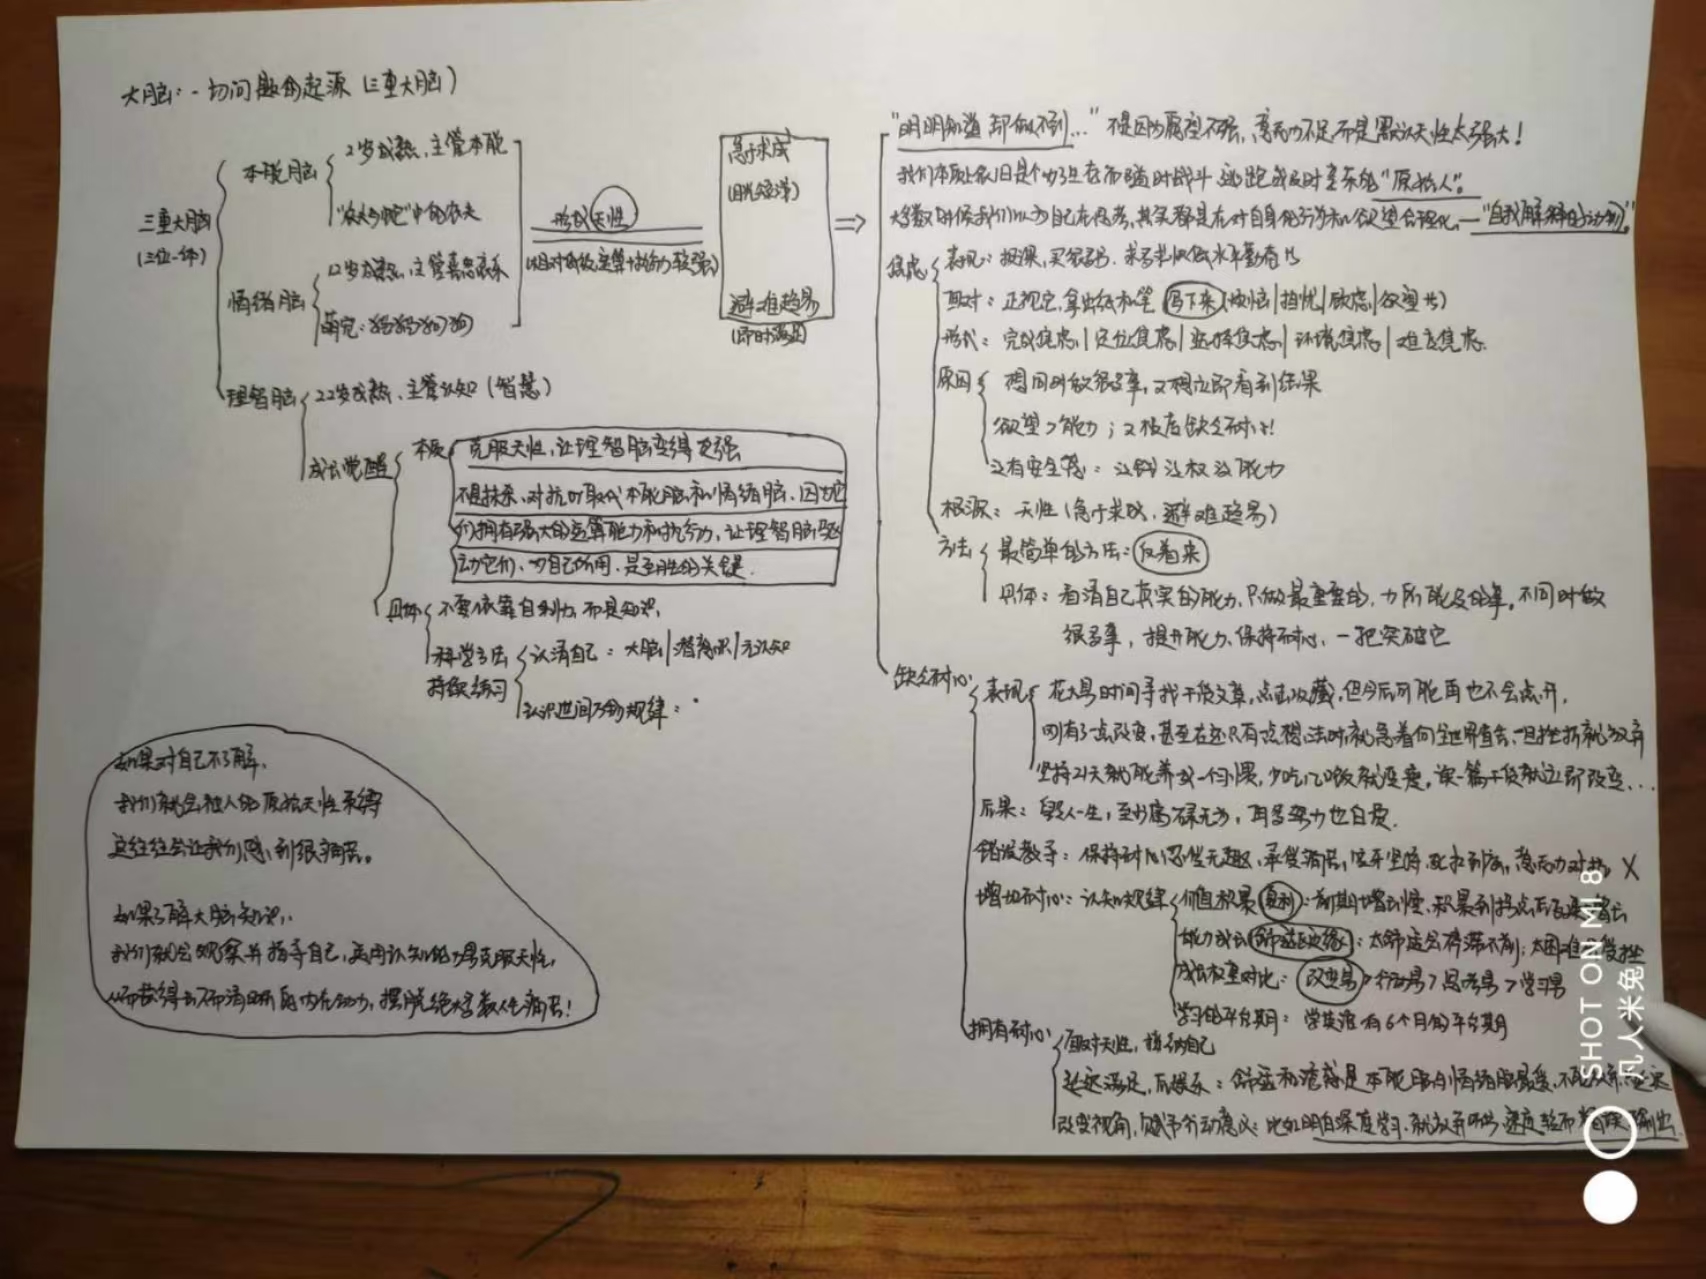 大脑:一切问题的起源(三重大脑)
三重大脑
(三位一体)
本能脑
2岁成熟、主管本能
"农夫与蛇"中的农夫
情绪脑
12岁成熟、主管喜怒哀乐
萌宠:猫猫狗狗
形成天性
(相对理智运算+执行力较强)
急于求成
(目光短浅)
避难趋易
(即时满足)
理智脑
22岁成熟、主管认知(智慧)
成长觉醒
本质
克服天性,让理智脑变得更强
不是抹杀、对抗or取代本能脑和情绪脑、因为它
们拥有强大的运算能力和执行力,让理智脑驱
动它们、为自己所用、是的关键.
具体
不要依靠自制力,而是知识,
科学方法
持续练习
认清自己:大脑|潜意识|元认知
认识世间万物规律:
如果对自己不了解,
我们就会被人的原始天性束缚
这往往会让我们感到很痛苦。
如果了解大脑知识,
我们就会观察并指导自己,运用认知能力克服天性,
从而获得清晰的内在动力,摆脱绝大多数人生痛苦!
"明明知道却做不到…"不是因为愿望不强,意志力不足而是默认天性太强大!
我们本质上依旧是个为了生存而随时战斗、逃跑或及时享乐的"原始人"。
大多数时候我们以为自己在思考,其实都是在对自身的行为和欲望合理化—"自我解释的动物"
焦虑
表现:报课,买很多书、
面对:正视它,拿出纸和笔写下来(烦恼|担忧|顾虑|欲望)
形式:完成焦虑|定位焦虑|选择焦虑|环境焦虑|难度焦虑
原因
想同时做很多事,又想立即看到结果
欲望>能力;又极度缺乏耐心!
没有安全感:没钱没权没能力
根源:天性(急于求成、避难趋易)
方法
最简单的方法:反着来
具体:看清自己真实的能力、只做最重要的、力所能及的事。不同时做
很多事,提升能力、保持耐心、一一把突破它
缺乏耐心
表现
花大量时间寻找干货文章,点击收藏,但今后可能再也不会点开,
刚有了一点改变,甚至在还只有点想法时就急着向全世界宣告、一旦挫折就放弃
坚持21天就能养成一个习惯,少吃几口饭就速瘦,读一篇干货就立即改变…
后果:毁人一生,至少庸碌无为,再多努力也白费.
错误教导:保持耐心忍受无趣、承受痛苦,咬牙坚持,死扣到底,意志力对抗 ×
增加耐心:认知规律
价值积累(复利):前期增长慢、积累到拐点后
能力成长舒适区边缘:太舒适会停滞不前;太困难
成长权重对比:改变量>行动量>思考量>学习量
学习的平台期:学英语有6个月的平台期
拥有耐心
面对天性,接纳自己
延迟满足,后娱乐:舒适和是本能脑与情绪脑最爱,
改变视角,赋予行动意义:比如明白深度学习、就放弃
SHOT ON MI 8
凡人米兔